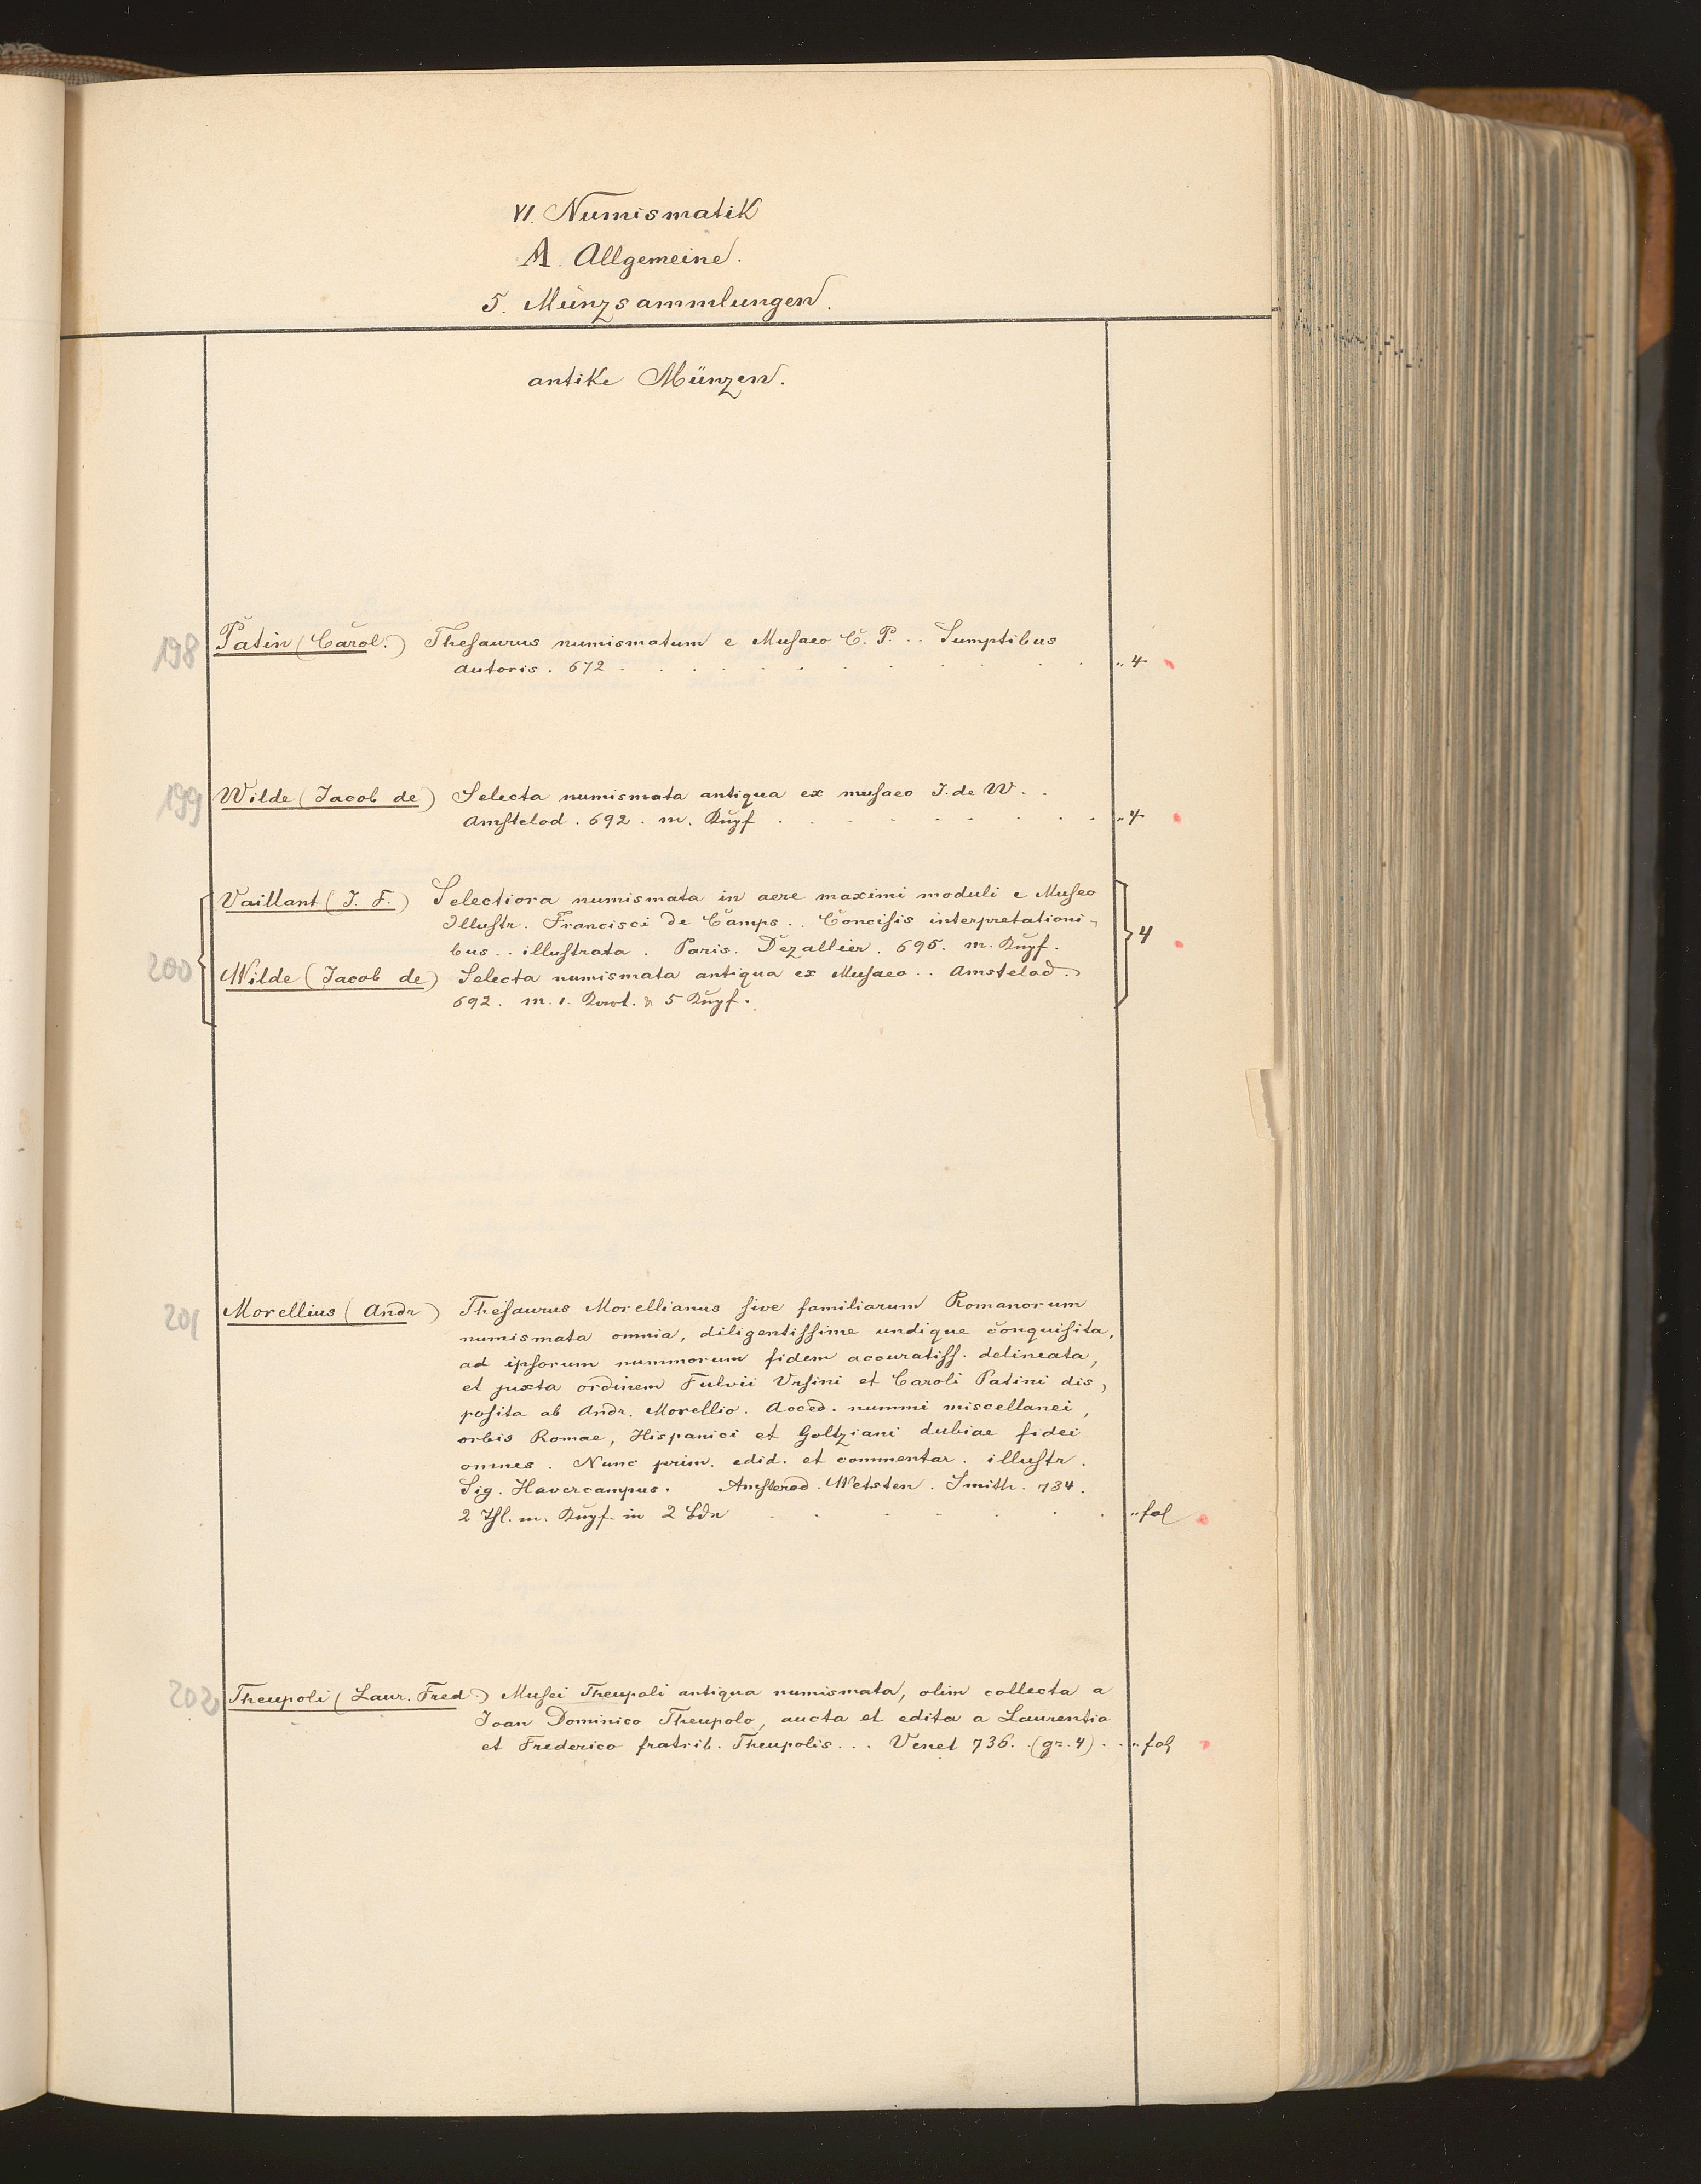 VI. Numismatik
A. Allgemeine.
5. Münzsammlungen.
antike Münzen.
198 Patin (Carol.) Thesaurus numismatum e Musaeo C. P. .. Sumptibus
autoris. 672 . . . . . . . . . . „ 4
199 Wilde (Jacob de) Selecta numismata antiqua ex musaeo J. de W. . .
Amstelod. 692. m. Kupf . . . . . . . . „ 4
Vaillant (J. F.) Selectiora numismata in aere maximi moduli e Museo
Illustr. Francisci de Camps .. Concisis interpretationi-
bus .. illustrata. Paris. Dezallier. 695. m. Kupf. 4
200 Wilde (Jacob de) Selecta numismata antiqua ex Musaeo .. Amstelod.
692. m. 1. Port. & 5 Kupf.
201 Morellius (Andr) Thesaurus Morellianus sive familiarum Romanorum
numismata omnia, diligentissime undique conquisita,
ad ipsorum nummorum fidem accuratiss. delineata,
et juxta ordinem Fulvii Ursini et Caroli Patini dis,
posita ab Andr. Morellio. Acced. nummi miscellanei,
orbis Romae, Hispanici et Goltziani dubiae fidei
omnes. Nunc prim. edid. et commentar. illustr.
Sig. Havercampus. Amsterod. Wetsten. Smith. 734.
2 Thl. m. Kupf. in 2 Bdn . . . . . . . „ fol
202 Theupoli (Laur. Fred.) Musei Theupoli antiqua numismata, olim collecta a
Joan Dominico Theupolo, aucta et edita a Laurentio
et Frederico fratrib. Theupolis ... Venet 736. (gr. 4) . . „ fol